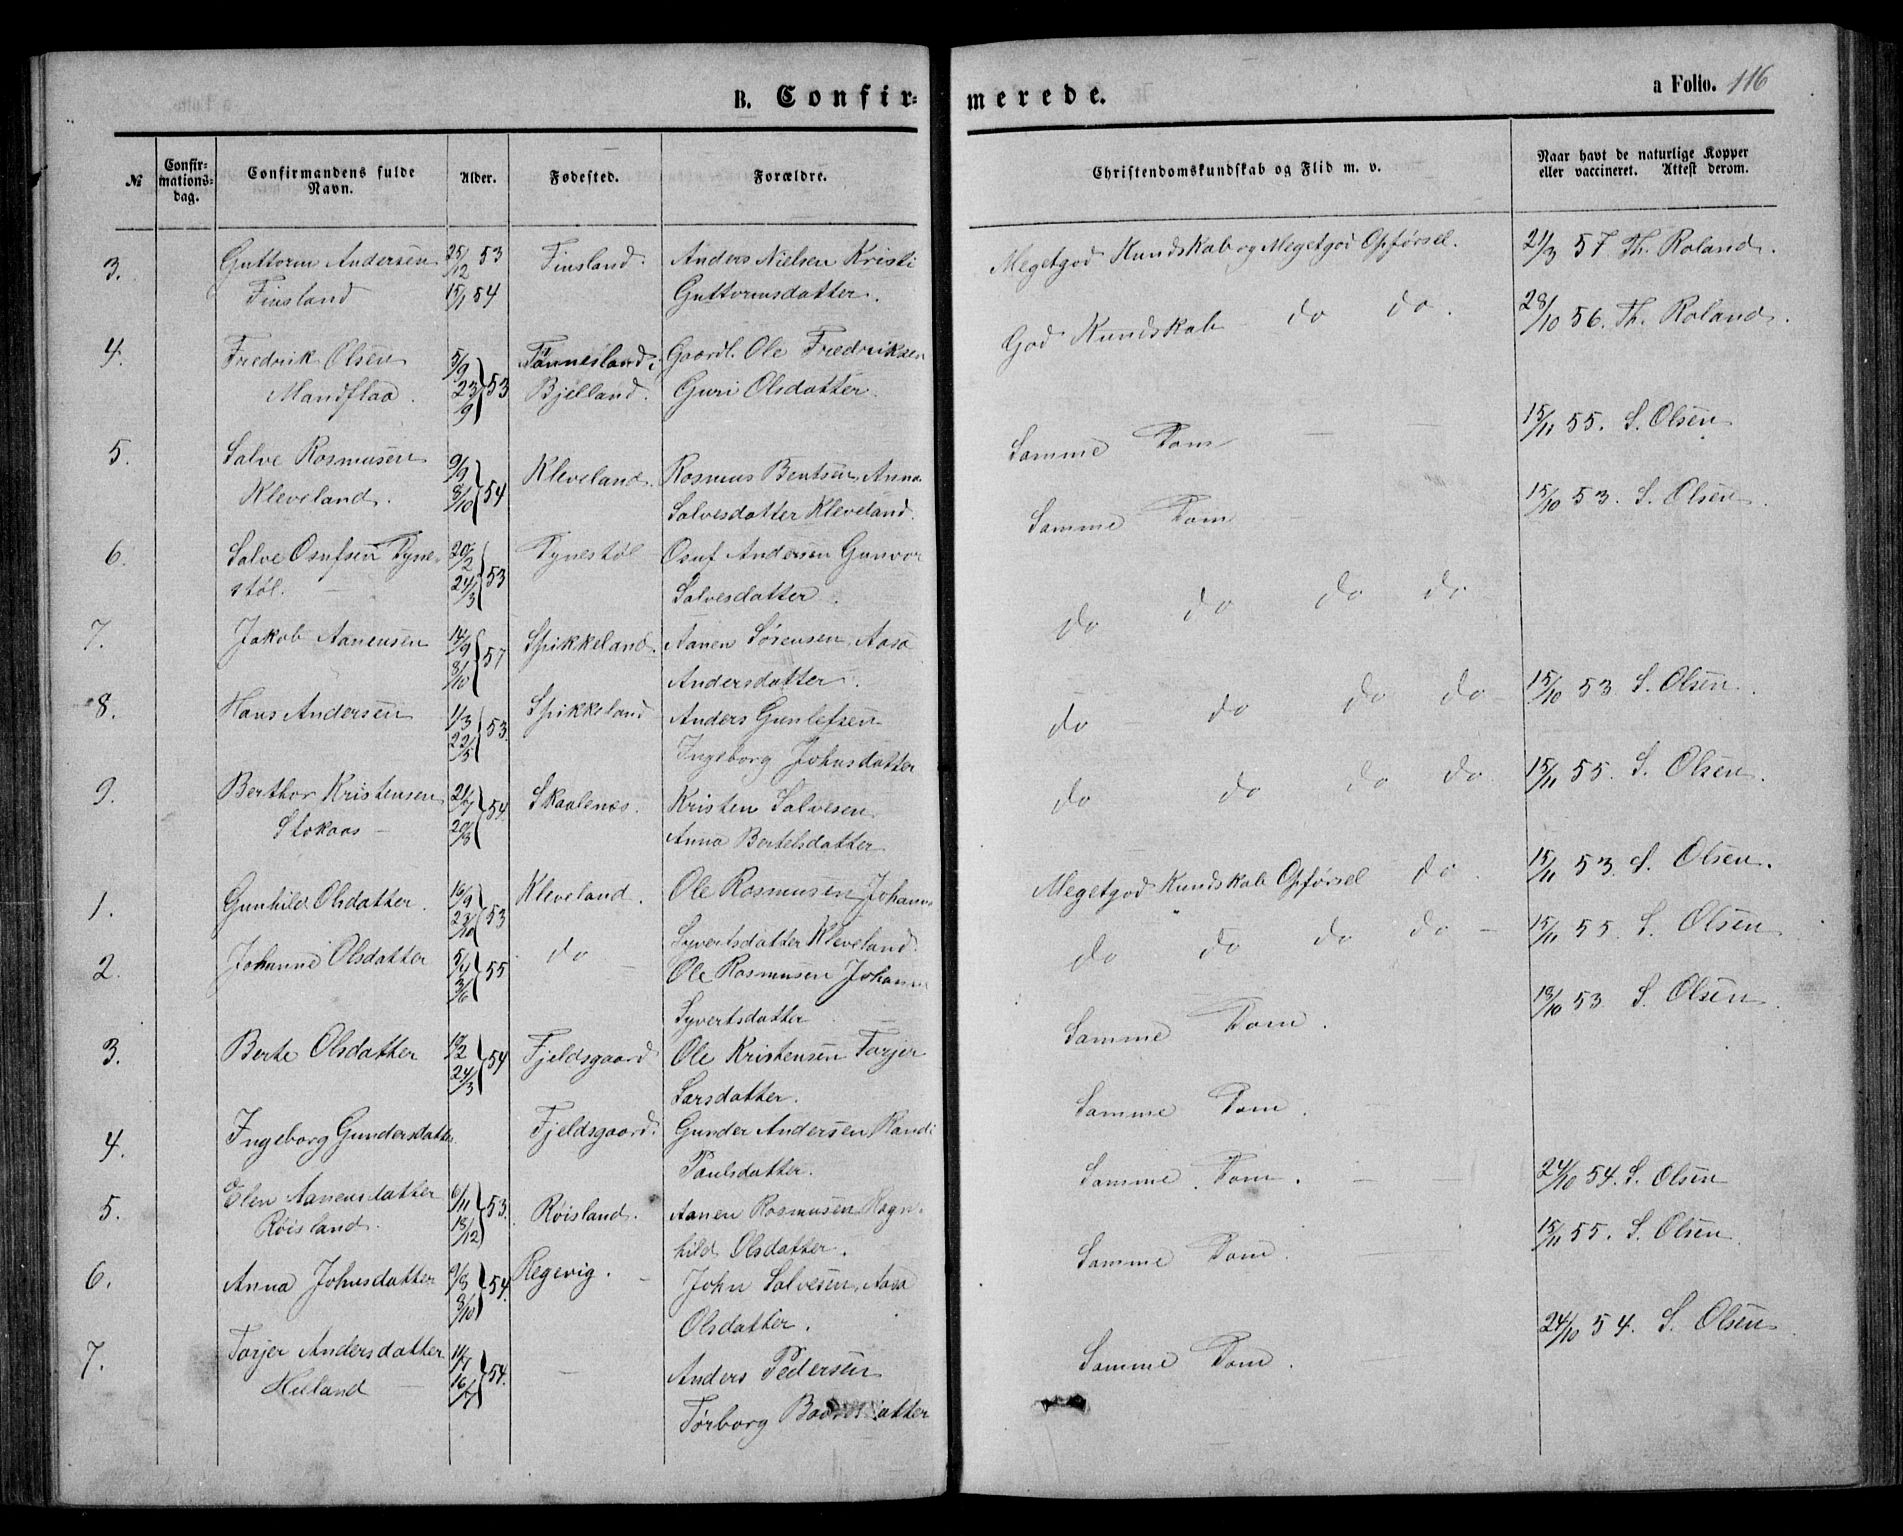 B. Confirmerede.
a Folio. 116
№
Confirmations-dag.
Confirmandens fulde Navn.
Alder.
Fødested.
Forældre.
Christendomskundskab og Flid m. v.
Naar havt de naturlige Kopper eller vaccineret. Attest derom.
3. Guttorm Andersen 25/12 53 Finsland. Anders Nielsen Kristi Megetgod Kundskab og Megetgod Opførsel. 21/3 57 Th. Roland.
Finsland 15/1 54 Guttormsdatter.
4. Fredrik Olsen 5/9 53 Tønnesland i Gaardl. Ole Fredriksen God Kundskab do do. 28/10 56. Th. Roland.
Mandflaa. 23/9 Bjelland. Guri Olsdatter.
5. Salve Rosmusen 9/9 54 Kleveland. Rosmus Bentsen, Anna Samme Dom 15/11 55. S. Olsen
Kleveland. 8/10 Salvesdatter Kleveland.
6. Salve Osufsen Dyne- 20/2 53 Dynestøl Osuf Andersen Gunvor Samme Dom 15/10 53. S. Olsen
støl. 24/3 Salvesdatter.
7. Jakob Aanensen 14/9 57 Spikkeland. Aanen Sørensen, Aasa do do do do
8/10 Andersdatter.
8. Hans Andersen 1/3 53. Spikkeland Anders Gunlefsen do do do do 15/10 53 S. Olsen
22/5 Ingeborg Johnsdatter
9. Berthor Kristensen 54. Skaalenes. Kristen Salvesen do do do do 15/11 55. S. Olsen.
Stokaas 20/3 Anna Bertelsdatter
1. Gunhild Olsdatter. 16/9 53 Kleveland. Ole Rosmusen Johanne Megetgod Kundskab Opførsel do. 15/11 53. S. Olsen.
23/10 Syvertsdatter Kleveland.
2. Johanne Olsdatter 5/4 55 do Ole Rosmusen Johanne do do do do 15/11 55. S. Olsen
3/6 Syvertsdatter
3. Berte Olsdatter 54 Fjeldsgaard Ole Kristensen Torjer Samme Dom. 53 S. Olsen
24/3 Larsdatter.
4. Ingeborg Gundersdatter Fjeldsgaard. Gunder Andersen, Randi Samme Dom.
Paulsdatter.
5. Elen Aanensdatter 6/11 53. Røisland. Aanen Rosmusen Ragn- Samme Dom. 24/10 54. S. Olsen
Røisland. 18/12 hild Olsdatter.
6. Anna Johnsdatter 9/8 54. Regevig. John Salvesen, Aasa Samme Dom. 15/11 55. S. Olsen
8/10 Olsdatter.
7. Torjer Andersdatter 54. Anders Pedersen Samme Dom. 24/10 54. S. Olsen
Helland 16/7 Tørborg